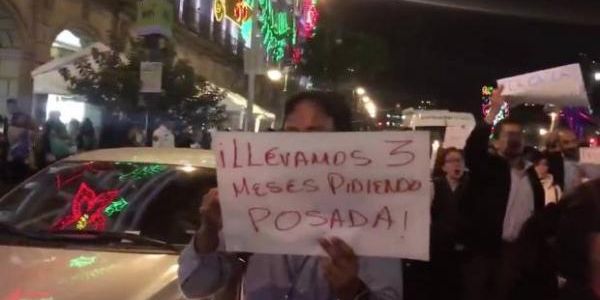 ¡LLEVAMOS 3
MESES PIDIENDO
POSADA!